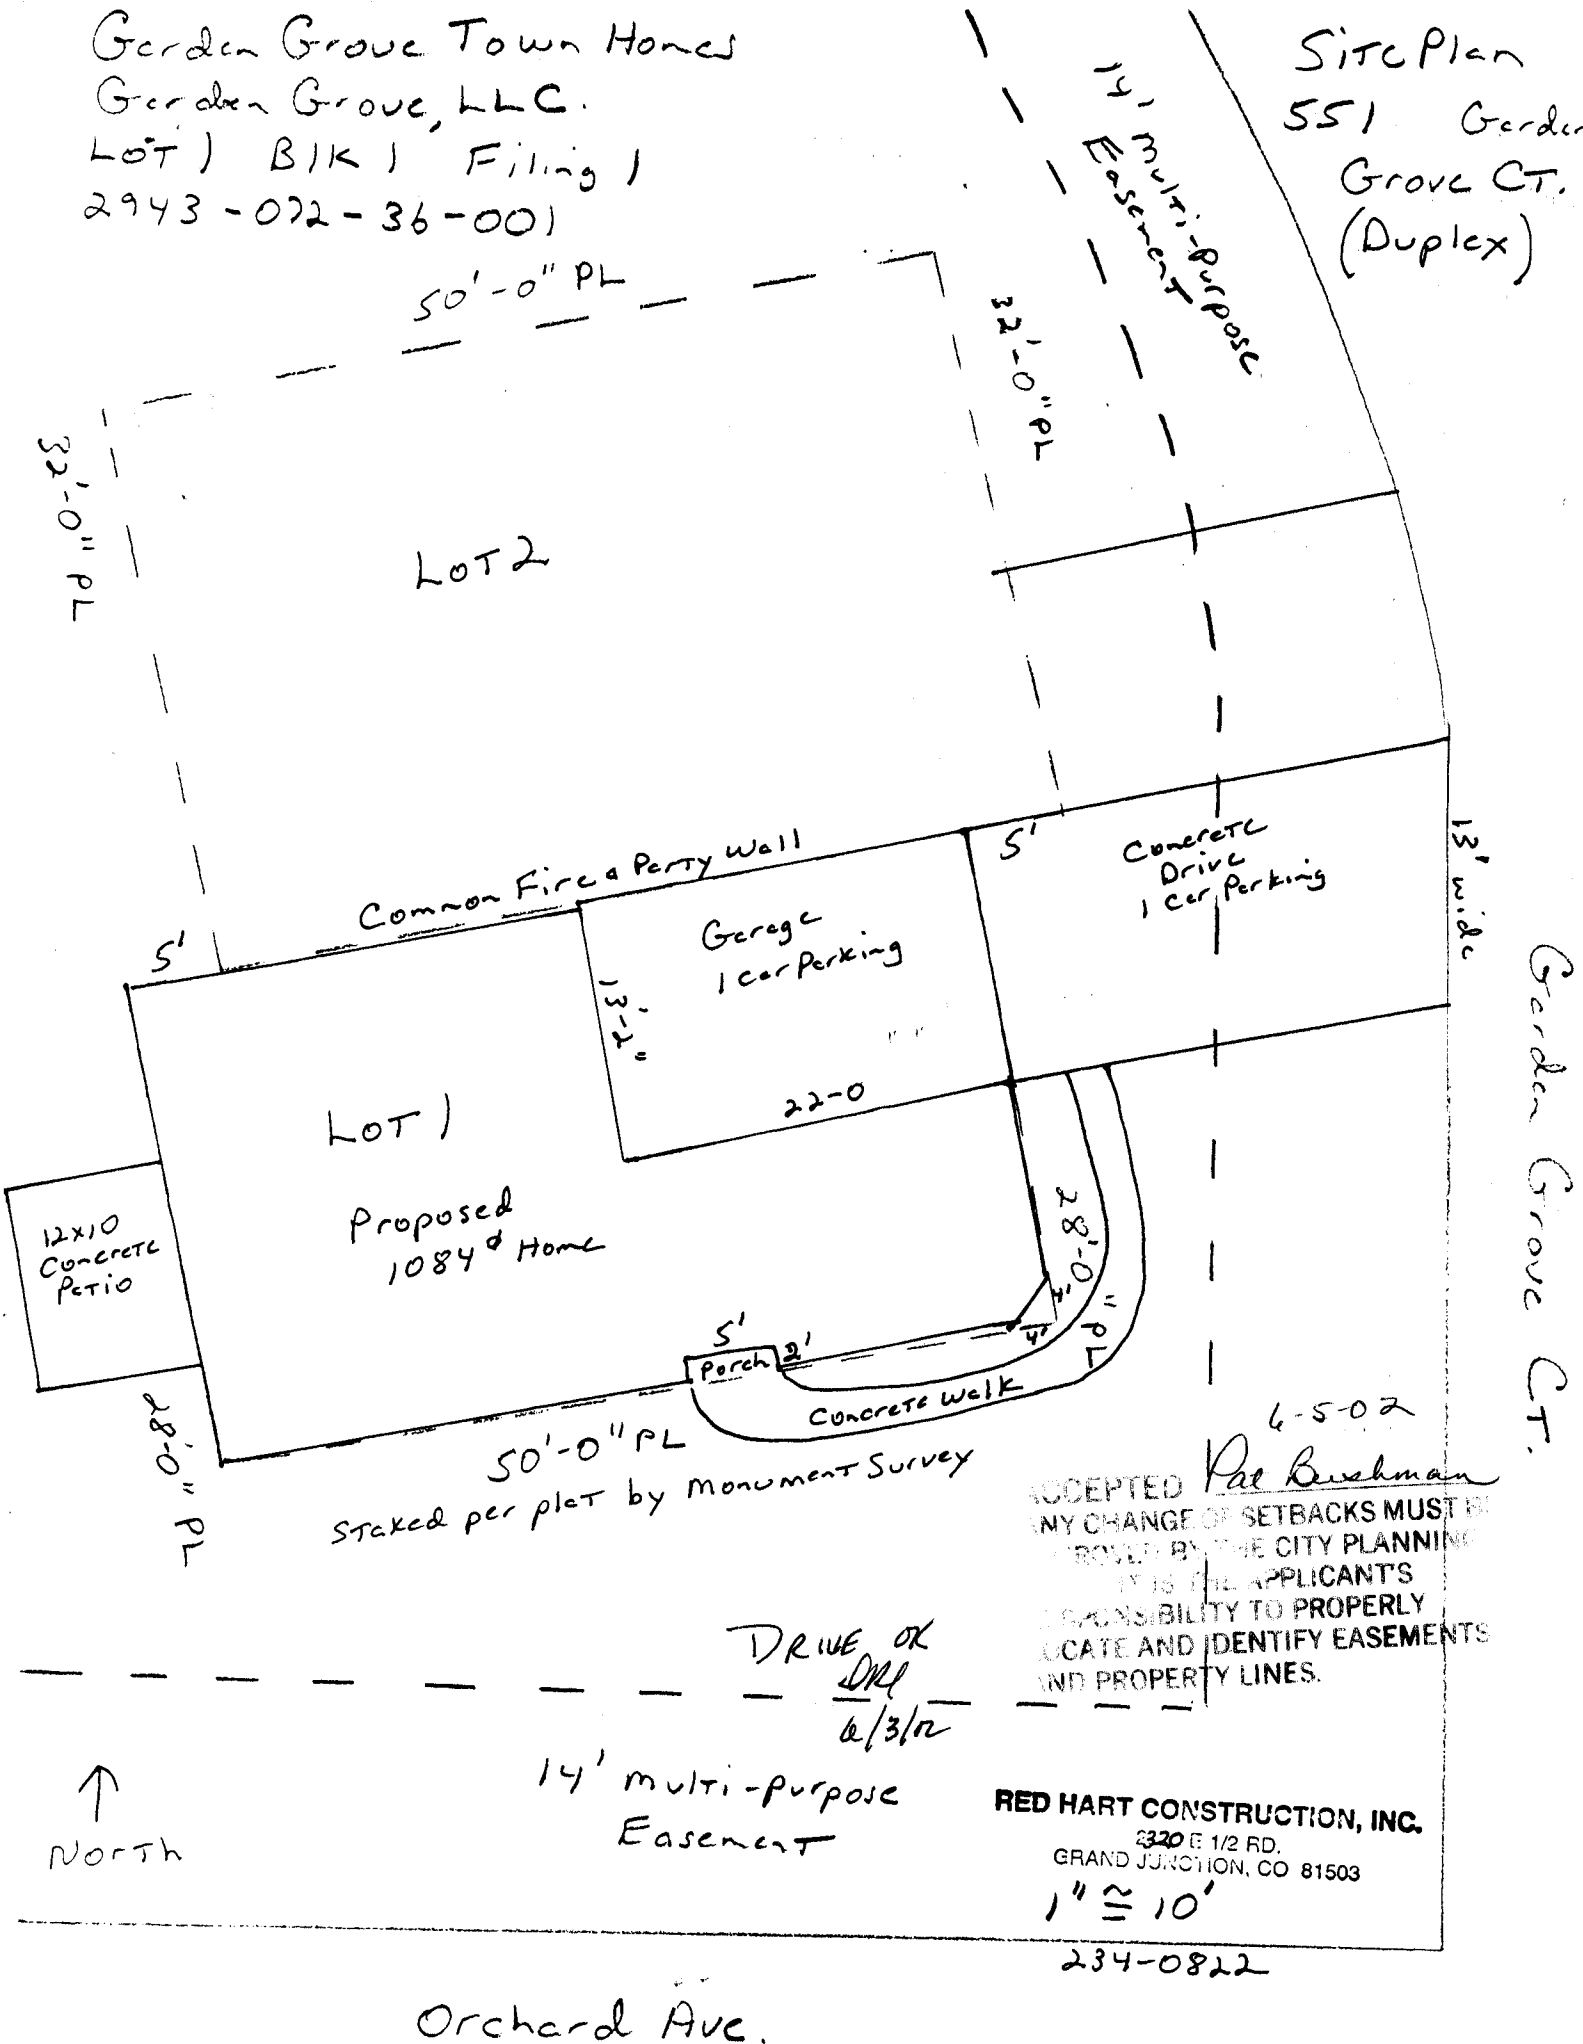 Garden Grove Town Homes
Garden Grove, LLC.
LOT 1 Blk 1 Filing 1
2943-072-36-001
Site Plan
551 Garden
Grove CT.
(Duplex)
14' Multi-Purpose
Easement
50'-0" PL
32'-0" PL
32'-0" PL
LOT 2
Common Fire & Party Wall
5'
5'
Concrete
Drive
1 Car Parking
13' wide
Garage
1 car Parking
13'-2"
22-0
LOT 1
Proposed
1084 Home
12x10
Concrete
Patio
28'-0" PL
4'
4'
5'
Porch
2'
Concrete Walk
28'-0" PL
50'-0" PL
Staked per plat by Monument Survey
Garden Grove CT.
6-5-02
ACCEPTED Pat Bushman
NY CHANGE OF SETBACKS MUST B
ROVED BY THE CITY PLANNING
IT IS THE APPLICANT'S
RESPONSIBILITY TO PROPERLY
OCATE AND IDENTIFY EASEMENTS
ND PROPERTY LINES.
DRIVE OK
6/3/02
14' multi-purpose
Easement
North
RED HART CONSTRUCTION, INC.
2320 E 1/2 RD.
GRAND JUNCTION, CO 81503
1" ≅ 10'
234-0822
Orchard Ave.